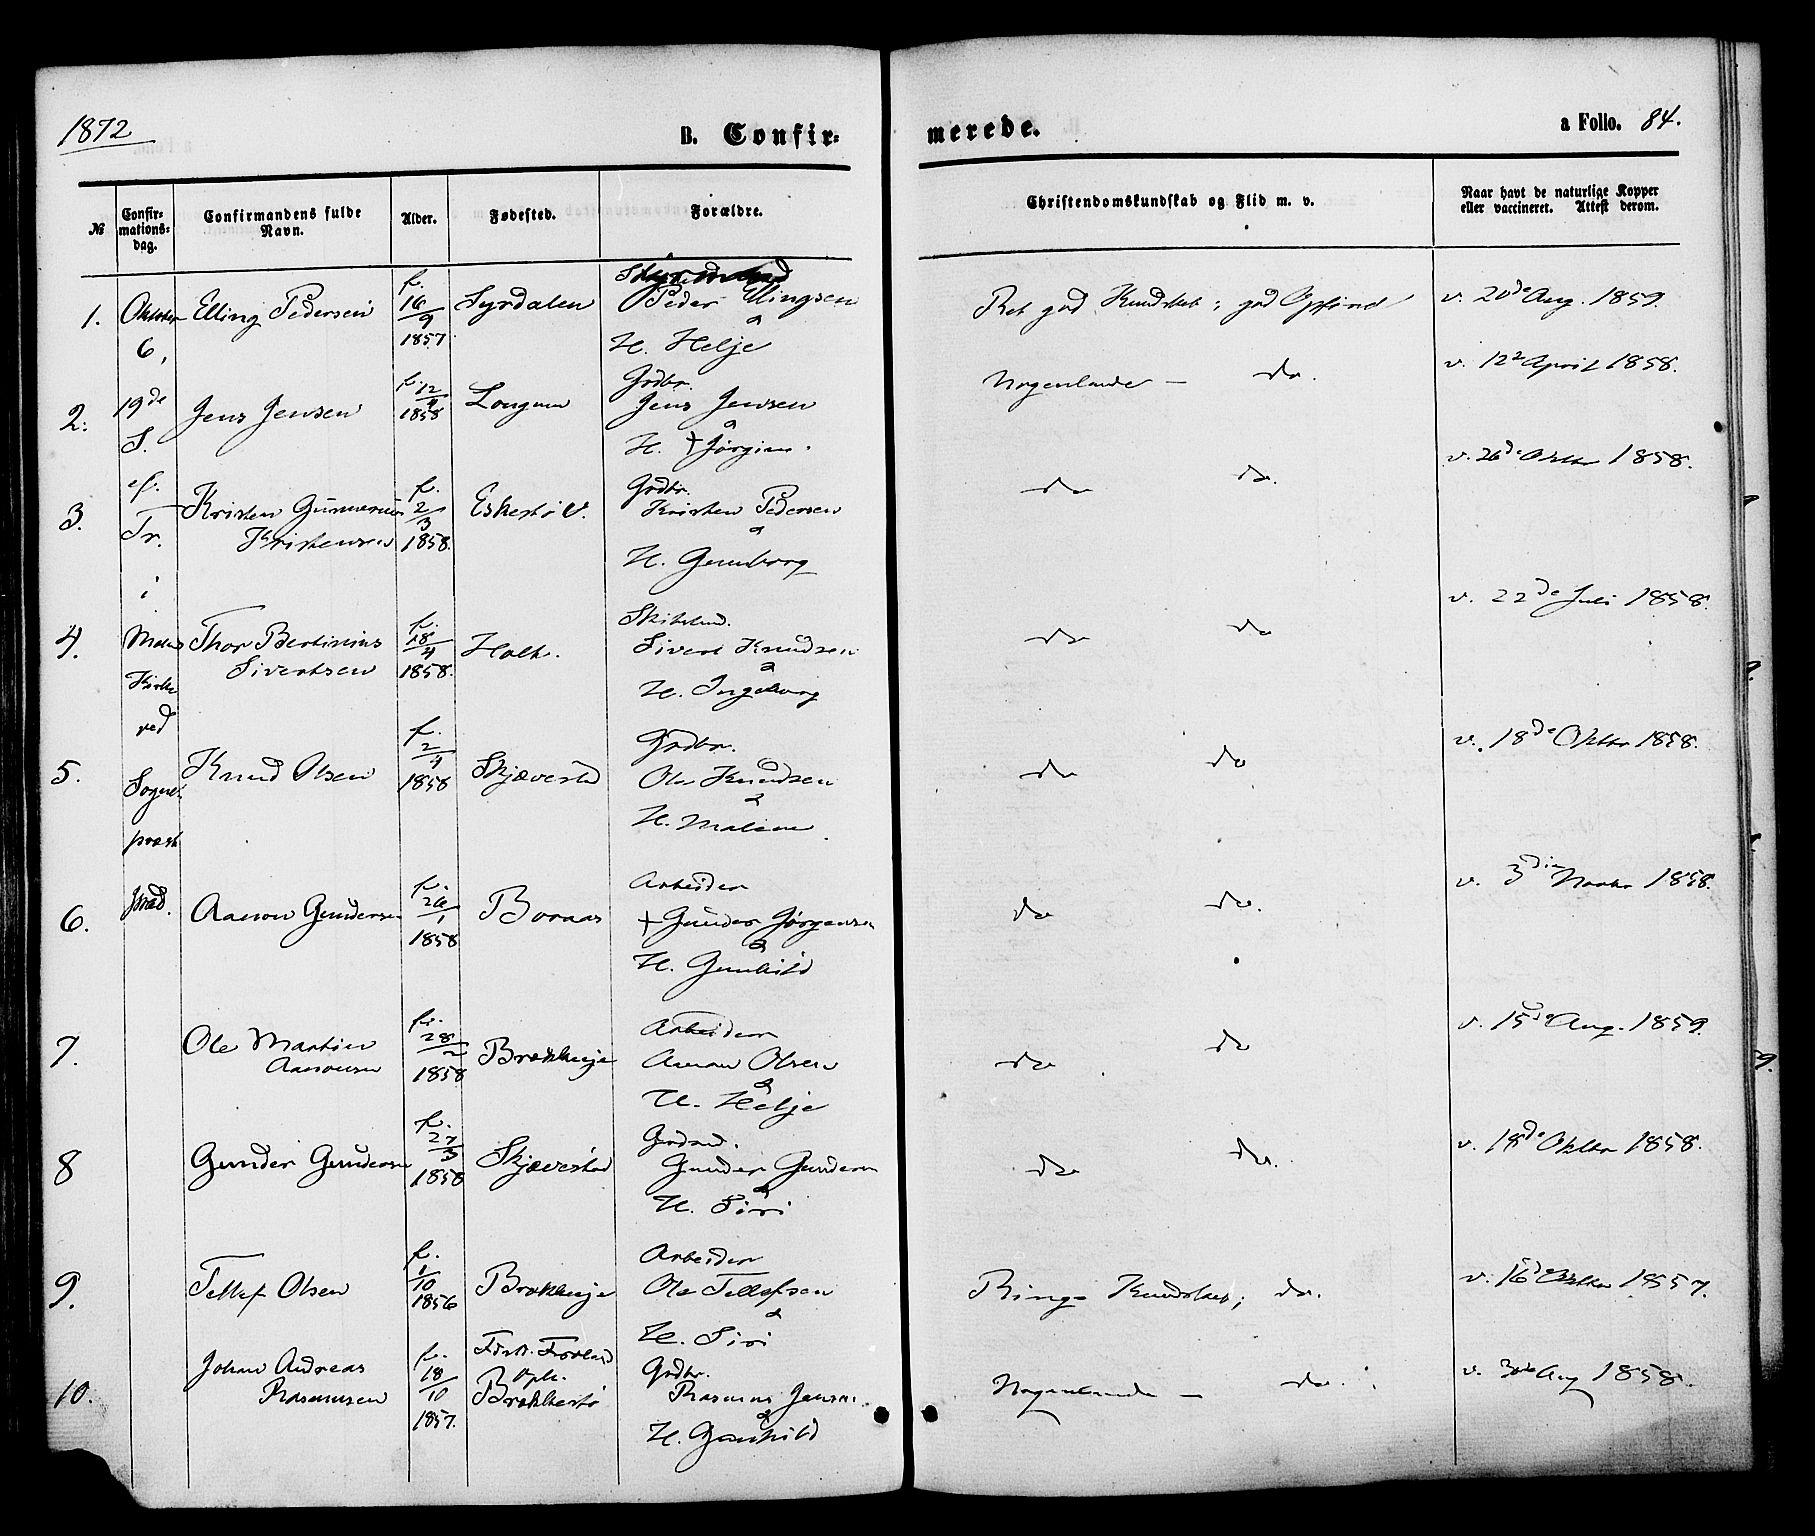 1872
B. Confir-
merede.
a Folio. 84.
№
Confir-
mations-
dag.
Confirmandens fulde
Navn.
Alder.
Fødested.
Forældre.
Christendomskundskab og Flid m. v.
Naar havt de naturlige Kopper
eller vaccineret. Attest derom.
Oktober
6,
19de
S.
ef.
Tr.
i
Kirke
ved
Sogne-
præst
1.
Elling Pedersen
f.
16/9
1857
Syrdalen
Peder Ellingsen
&
H. Helje
Ret god Kundskab; god Opførsel
v. 20de Aug. 1859.
2.
Jens Jensen
f. 12/4
1858
Longum
Grdbr.
Jens Jensen
&
H. + Jørgine.
Nogenlunde — do.
v. 12te April 1858.
3.
Kristen Gunnerius
Kristensen
f.
2/3
1858.
Grdbr.
Kristen Pedersen
&
H. Gunborg
do do.
v. 26de Oktbr 1858.
4.
Thor Bertinius
Sivertsen
f.
18/4
1858.
Holt.
Sivert Knudsen
&
H. Ingeborg
do do
v. 22de Juli 1858.
5.
Knud Olsen
f.
2/4
1858
Skjævestad
Grdbr.
Ole Knudsen
&
H. Malene
do do
v. 18de Oktbr 1858.
6.
Aanon Gundersen
f.
26/1
1858
Boraas
Arbeider
+ Gunder Jørgensen
&
H. Gunhild
do do.
v. 3die Novbr 1858.
7.
Ole Martin
Aanonsen
f.
28/2
1858
Brækkeheje
Arbeider
Aanon Olsen
&
H. Helje
do do
v. 15de Aug. 1859.
8
Gunder Gundersen
f.
27/3
1858
Skjævestad
Gunder Gundersen
&
H. Siri
do do.
v. 18de Oktbr 1858.
9.
Tellef Olsen
f.
1/10
1856
Brækkeheje
Arbeider
Ole Tellefsen
&
H. Siri
Ringe Kundskab; do.
v. 16de Oktbr 1857.
10.
Johan Andreas
Rasmussen
f.
18/10
1857.
Froland
Opl.
Brækkestø
Grdbr.
Rasmus Jensen
&
H. Gunhild
Nogenlunde — do.
v. 30te Aug 1858.